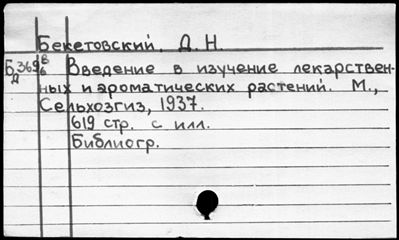 Бекетовский, Д. Н.
Введение в изучение лекарствен-
ных и ароматических растений. М.,
Сельхозгиз, 1937.
619 стр. с илл.
Библиогр.